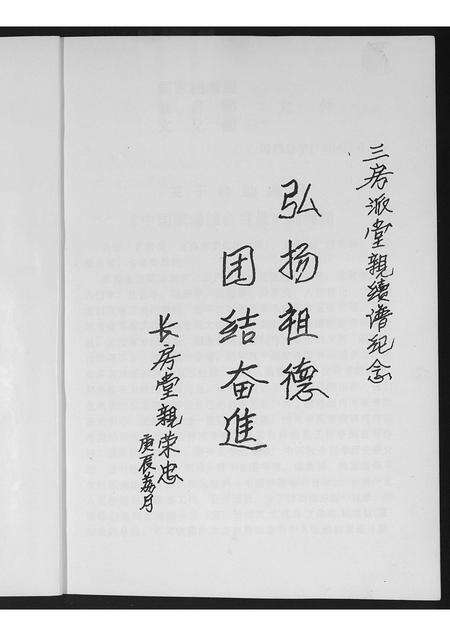 三房派堂親續谱纪念
弘扬祖德
团结奋進
长房堂親荣忠
庚辰荔月